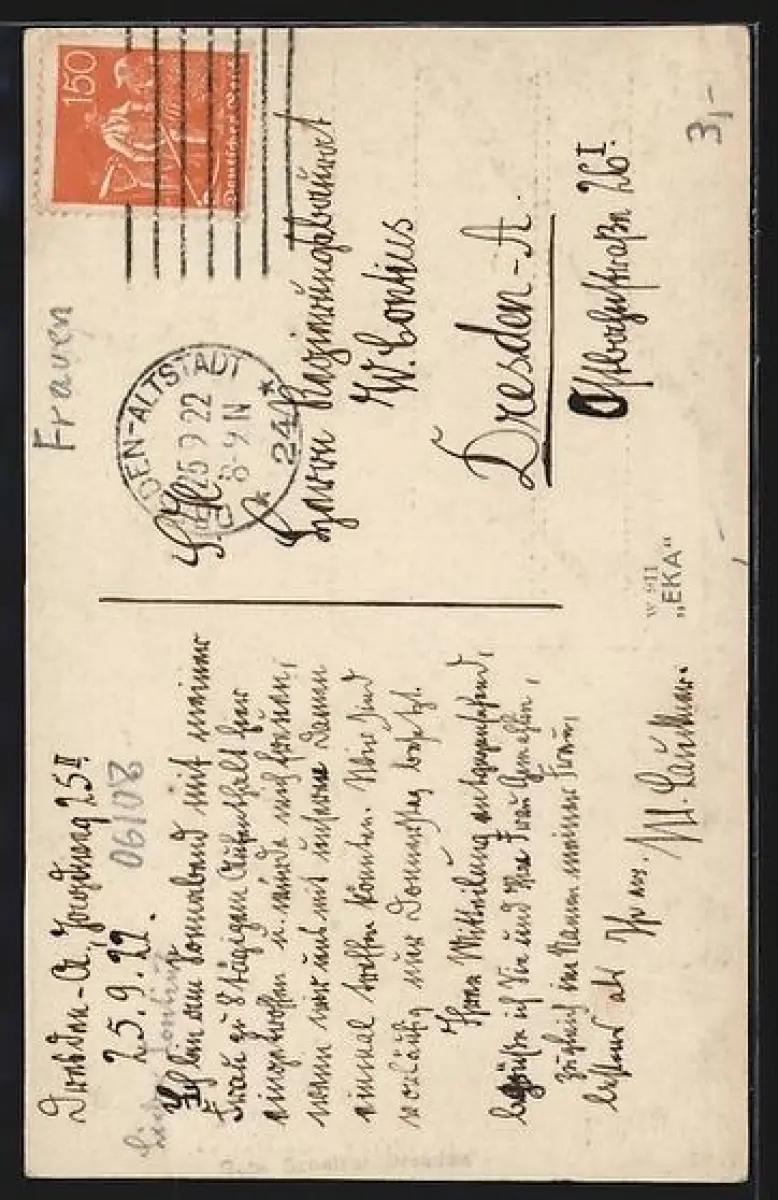 Dresden-A, Jagdweg 25 II
25.9.22.
Ich bin am Sonnabend mit meiner
Frau zu 8 tägigem Aufenthalt hier
eingetroffen u. würde mich freuen,
wenn wir uns mit unseren Damen
einmal treffen könnten. Wir sind
vorläufig nur Donnerstag besetzt.
Ihrer Mitteilung entgegensehend,
begrüße ich Sie und Ihre Frau Gemahlin,
zugleich im Namen meiner Frau,
bestens als Ihr erg.
150
Deutsches Reich
DEN-ALTSTADT
25 9 22
8-9 N
* 24 *
S. H.
Herrn Regierungsbaurat
W. Contius
Dresden-A.
Ostbahnstraße 26 I.
Frauen
06108
3,-
W 911
„EKA“